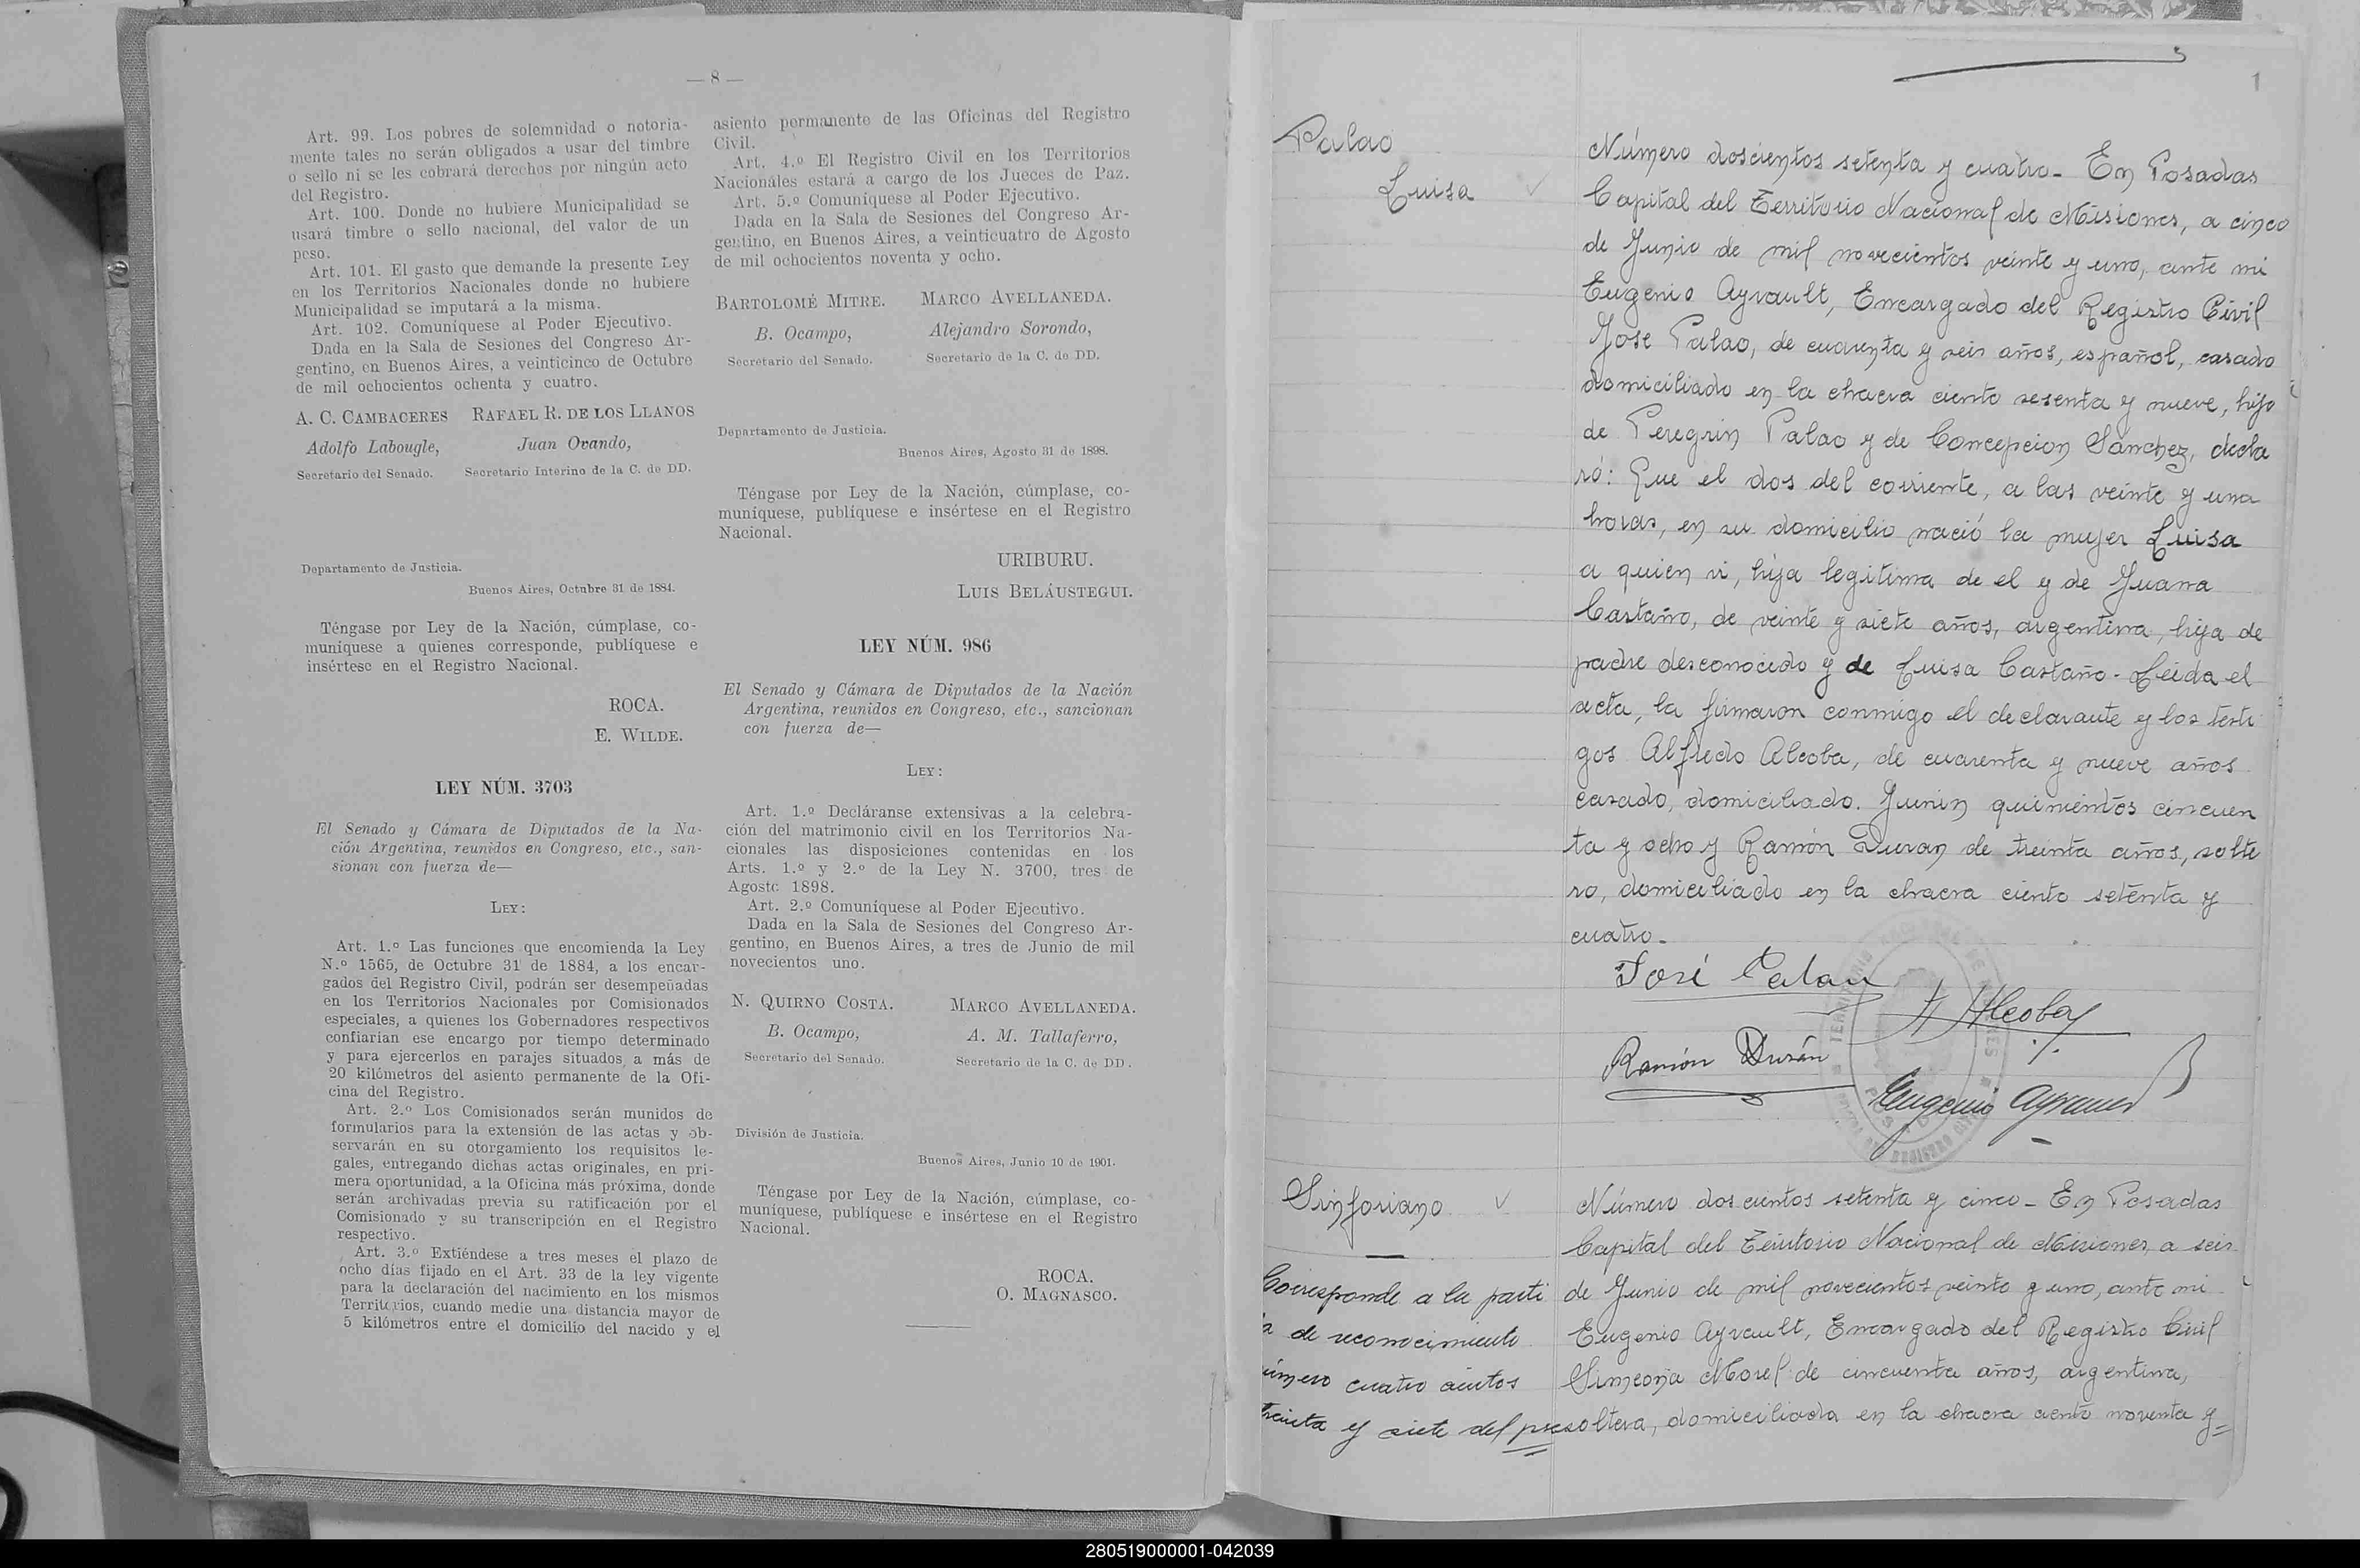 — 8 —
Art. 99. Los pobres de solemnidad o notoria-
mente tales no serán obligados a usar del timbre
o sello ni se les cobrará derechos por ningún acto
del Registro.
Art. 100. Donde no hubiere Municipalidad se
usará timbre o sello nacional, del valor de un
peso.
Art. 101. El gasto que demande la presente Ley
en los Territorios Nacionales donde no hubiere
Municipalidad se imputará a la misma.
Art. 102. Comuníquese al Poder Ejecutivo.
Dada en la Sala de Sesiones del Congreso Ar-
gentino, en Buenos Aires, a veinticinco de Octubre
de mil ochocientos ochenta y cuatro.
A. C. CAMBACERES RAFAEL R. DE LOS LLANOS
Adolfo Labougle, Juan Ovando,
Secretario del Senado. Secretario Interino de la C. de DD.
Departamento de Justicia.
Buenos Aires, Octubre 31 de 1884.
Téngase por Ley de la Nación, cúmplase, co-
muníquese a quienes corresponde, publíquese e
insértese en el Registro Nacional.
ROCA.
E. WILDE.
LEY NÚM. 3703
El Senado y Cámara de Diputados de la Na-
ción Argentina, reunidos en Congreso, etc., san-
sionan con fuerza de—
LEY:
Art. 1.º Las funciones que encomienda la Ley
N.º 1565, de Octubre 31 de 1884, a los encar-
gados del Registro Civil, podrán ser desempeñadas
en los Territorios Nacionales por Comisionados
especiales, a quienes los Gobernadores respectivos
confiarían ese encargo por tiempo determinado
y para ejercerlos en parajes situados a más de
20 kilómetros del asiento permanente de la Ofi-
cina del Registro.
Art. 2.º Los Comisionados serán munidos de
formularios para la extensión de las actas y ob-
servarán en su otorgamiento los requisitos le-
gales, entregando dichas actas originales, en pri-
mera oportunidad, a la Oficina más próxima, donde
serán archivadas previa su ratificación por el
Comisionado y su transcripción en el Registro
respectivo.
Art. 3.º Extiéndese a tres meses el plazo de
ocho días fijado en el Art. 33 de la ley vigente
para la declaración del nacimiento en los mismos
Territorios, cuando medie una distancia mayor de
5 kilómetros entre el domicilio del nacido y el
asiento permanente de las Oficinas del Registro
Civil.
Art. 4.º El Registro Civil en los Territorios
Nacionales estará a cargo de los Jueces de Paz.
Art. 5.º Comuníquese al Poder Ejecutivo.
Dada en la Sala de Sesiones del Congreso Ar-
gentino, en Buenos Aires, a veinticuatro de Agosto
de mil ochocientos noventa y ocho.
BARTOLOMÉ MITRE. MARCO AVELLANEDA.
B. Ocampo, Alejandro Sorondo,
Secretario del Senado. Secretario de la C. de DD.
Departamento de Justicia.
Buenos Aires, Agosto 31 de 1898.
Téngase por Ley de la Nación, cúmplase, co-
muníquese, publíquese e insértese en el Registro
Nacional.
URIBURU.
LUIS BELÁUSTEGUI.
LEY NÚM. 986
El Senado y Cámara de Diputados de la Nación
Argentina, reunidos en Congreso, etc., sancionan
con fuerza de—
LEY:
Art. 1.º Decláranse extensivas a la celebra-
ción del matrimonio civil en los Territorios Na-
cionales las disposiciones contenidas en los
Arts. 1.º y 2.º de la Ley N. 3700, tres de
Agosto 1898.
Art. 2.º Comuníquese al Poder Ejecutivo.
Dada en la Sala de Sesiones del Congreso Ar-
gentino, en Buenos Aires, a tres de Junio de mil
novecientos uno.
N. QUIRNO COSTA. MARCO AVELLANEDA.
B. Ocampo, A. M. Tallaferro,
Secretario del Senado. Secretario de la C. de DD.
División de Justicia.
Buenos Aires, Junio 10 de 1901.
Téngase por Ley de la Nación, cúmplase, co-
muníquese, publíquese e insértese en el Registro
Nacional.
ROCA.
O. MAGNASCO.
1
Palao
Luisa
Número doscientos setenta y cuatro- En Posadas
Capital del Territorio Nacional de Misiones, a cinco
de Junio de mil novecientos veinte y uno, ante mi
Eugenio Ayrault, Encargado del Registro Civil
Jose Palao, de cuarenta y seis años, español, casado
domiciliado en la chacra ciento sesenta y nueve, hijo
de Peregrin Palao y de Concepcion Sánchez, decla
ró: Que el dos del corriente, a las veinte y una
horas, en su domicilio nació la mujer Luisa
a quien vi, hija legitima de el y de Juana
Castaño, de veinte y siete años, argentina, hija de
padre desconocido y de Luisa Castaño. Leida el
acta, la firmaron conmigo el declarante y los testi
gos Alfredo Alcoba, de cuarenta y nueve años
casado, domiciliado. Junin quinientos cincuen
ta y ocho y Ramón Duran de treinta años, solte
ro, domiciliado en la chacra ciento setenta y
cuatro.
José Palau
A Alcoba
Ramón Durán
Eugenio Ayrault
Sinforiano
Corresponde a la parti
a de reconocimiento
úmero cuatro cientos
treinta y siete del pre
Número doscientos setenta y cinco- En Posadas
Capital del Territorio Nacional de Misiones, a seis
de Junio de mil novecientos veinte y uno, ante mi
Eugenio Ayrault, Encargado del Registro Civil
Simeona Morel de cincuenta años, argentina,
soltera, domiciliada en la chacra ciento noventa y=
280519000001-042039